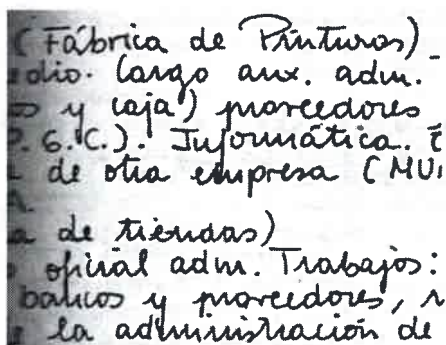 (Fábrica de Pinturas)
edio. Cargo aux. adm.
y caja) proveedores
P.G.C.). Informática.
de otra empresa (MU
a de tiendas)
oficial adm. Trabajos:
bancos y proveedores,
la administración de